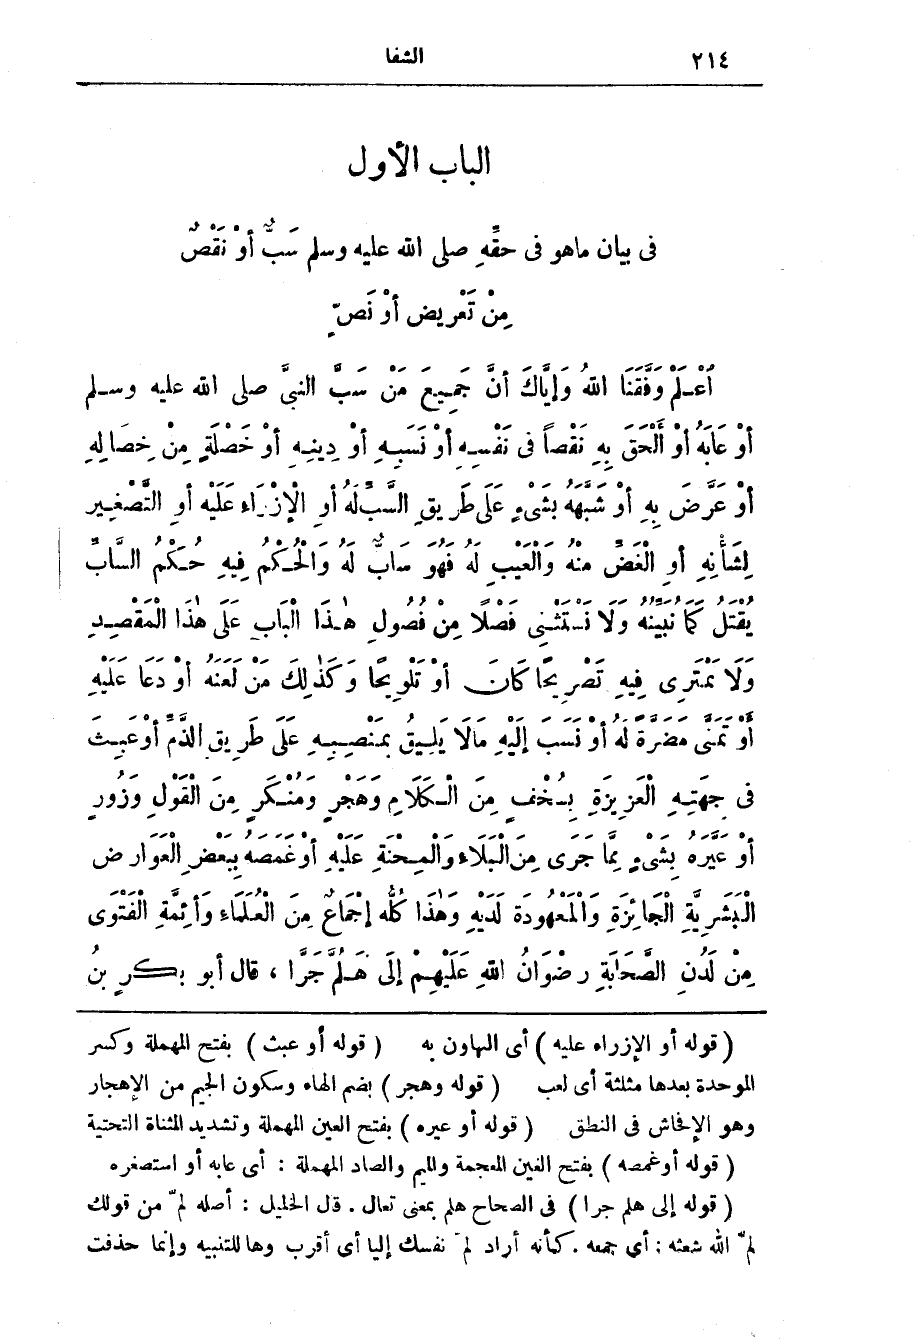 ٢١٤ الشفا
الباب الأول
فى بيان ماهو فى حقِّهِ صلى الله عليه وسلم سَبٌّ أوْ نَقْصٌ
مِنْ تَعْريض أوْ نَصّ
اْعْـلَمْ وَفَّقَنَا اللهُ وَإيَّاكَ أنَّ جَمِيعَ مَنْ سَبَّ النبىَّ صلى الله عليه وسـلم
أوْ عَابَهُ أوْ أَلْحَقَ بِهِ نَقْصاً فى نَفْسِهِ أوْ نَسَبِهِ أوْ دِينِهِ أوْ خَصْلَةٍ مِنْ خِصَالِهِ
أوْ عَرَّضَ بِهِ أوْ شَبَّهَهُ بَشْىءٍ عَلَى طَرِيقِ السَّبِّ لَهُ أوِ الْإزْرَاءِ عَلَيْهِ أوِ التَّصْغِيرِ
لِشَأْنِهِ أوِ الْغَضِّ مِنْهُ وَالْعَيْبِ لَهُ فَهُوَ سَابٌّ لَهُ وَالْحُكْمُ فِيهِ حُـكْمُ السَّابِّ
يُقْتَلُ كَمَا نُبَيِّنُهُ وَلَا نَسْتَثْنِى فَصْلًا مِنْ فُصُولِ هـٰذَا الْبَابِ عَلَى هٰذَا الْمَقْصِدِ
وَلَا نَمْتَرِى فِيهِ تَصْرِيحًا كَانَ أوْ تَلْوِيحًا وَكَذٰلِكَ مَنْ لَعَنَهُ أوْ دَعَا عَلَيْهِ
أوْ تَمَنَّى مَضَرَّةً لَهُ أوْ نَسَبَ إلَيْهِ مَالَا يَلِيقُ بِمَنْصِبِهِ عَلَى طَرِيقِ الذَّمِّ أوْعَبِثَ
فى جِهَتِهِ الْعَزِيزَةِ بِسُخْفٍ مِنَ الْـكَلَامِ وَهَجْرٍ وَمُنْـكَرٍ مِنَ الْقَوْلِ وَزُورٍ
أوْ عَيَّرَهُ بَشْىءٍ مِمَّا جَرَى مِنَ الْبَلَاءِ وَالْمِحْنَةِ عَلَيْهِ أوْغَمَصَهُ بِبَعْضِ الْعَوَارِضِ
الْبَشَرِيَّةِ الْجَائِزَةِ وَالْمَعْهُودَةِ لَدَيْهِ وَهٰذَا كُلُّه إجْمَاعٌ مِنَ الْعُلَمَاءِ وَأئِمَّةِ الْفَتْوَى
مِنْ لَدُنِ الصَّحَابَةِ رِضْوَانُ اللهِ عَلَيْهِمْ إلَى هَـلُمَّ جَرًّا ، قال أبو بـكـرِ بنُ
( قوله أو الإزراء عليه ) أى التهاون به ( قوله أو عبث ) بفتح المهملة وكسر
الموحدة بعدها مثلثة أى لعب ( قوله وهجر ) بضم الهاء وسكون الجيم من الإهجار
وهو الإفحاش فى النطق ( قوله أو عيره ) بفتح العين المهملة وتشديد المثناة التحتية
( قوله أوغمصه ) بفتح الغين المعجمة والميم والصاد المهملة : أى عابه أو استصغره
( قوله إلى هلم جرا ) فى الصحاح هلم بمعنى تعال . قال الخليل : أصله لمّ من قولك
لمّ الله شعثه : أي جمعه . كأنه أراد لمّ نفسك إلينا أى أقرب وها للتنبيه وإنما حذفت